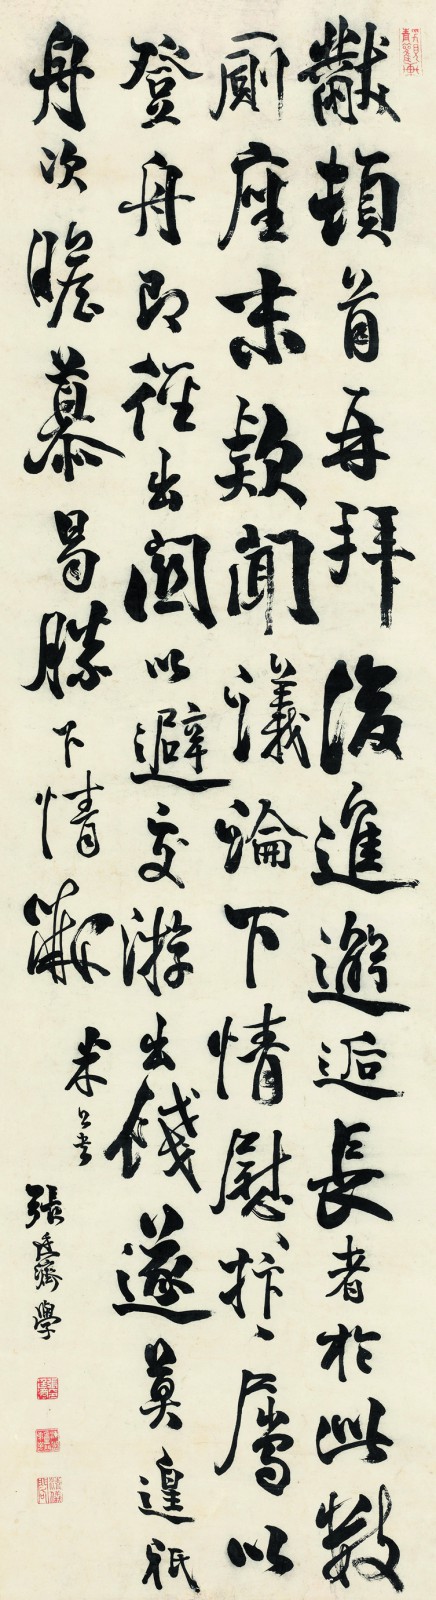 黻頓首再拜後進邂逅長者於此數
廁座末款聞議論下情慰抃慰抃屬以
登舟即徑出關以避交游出餞遂莫遑祇
舟次瞻慕曷勝下情黻
米公書
張廷濟學